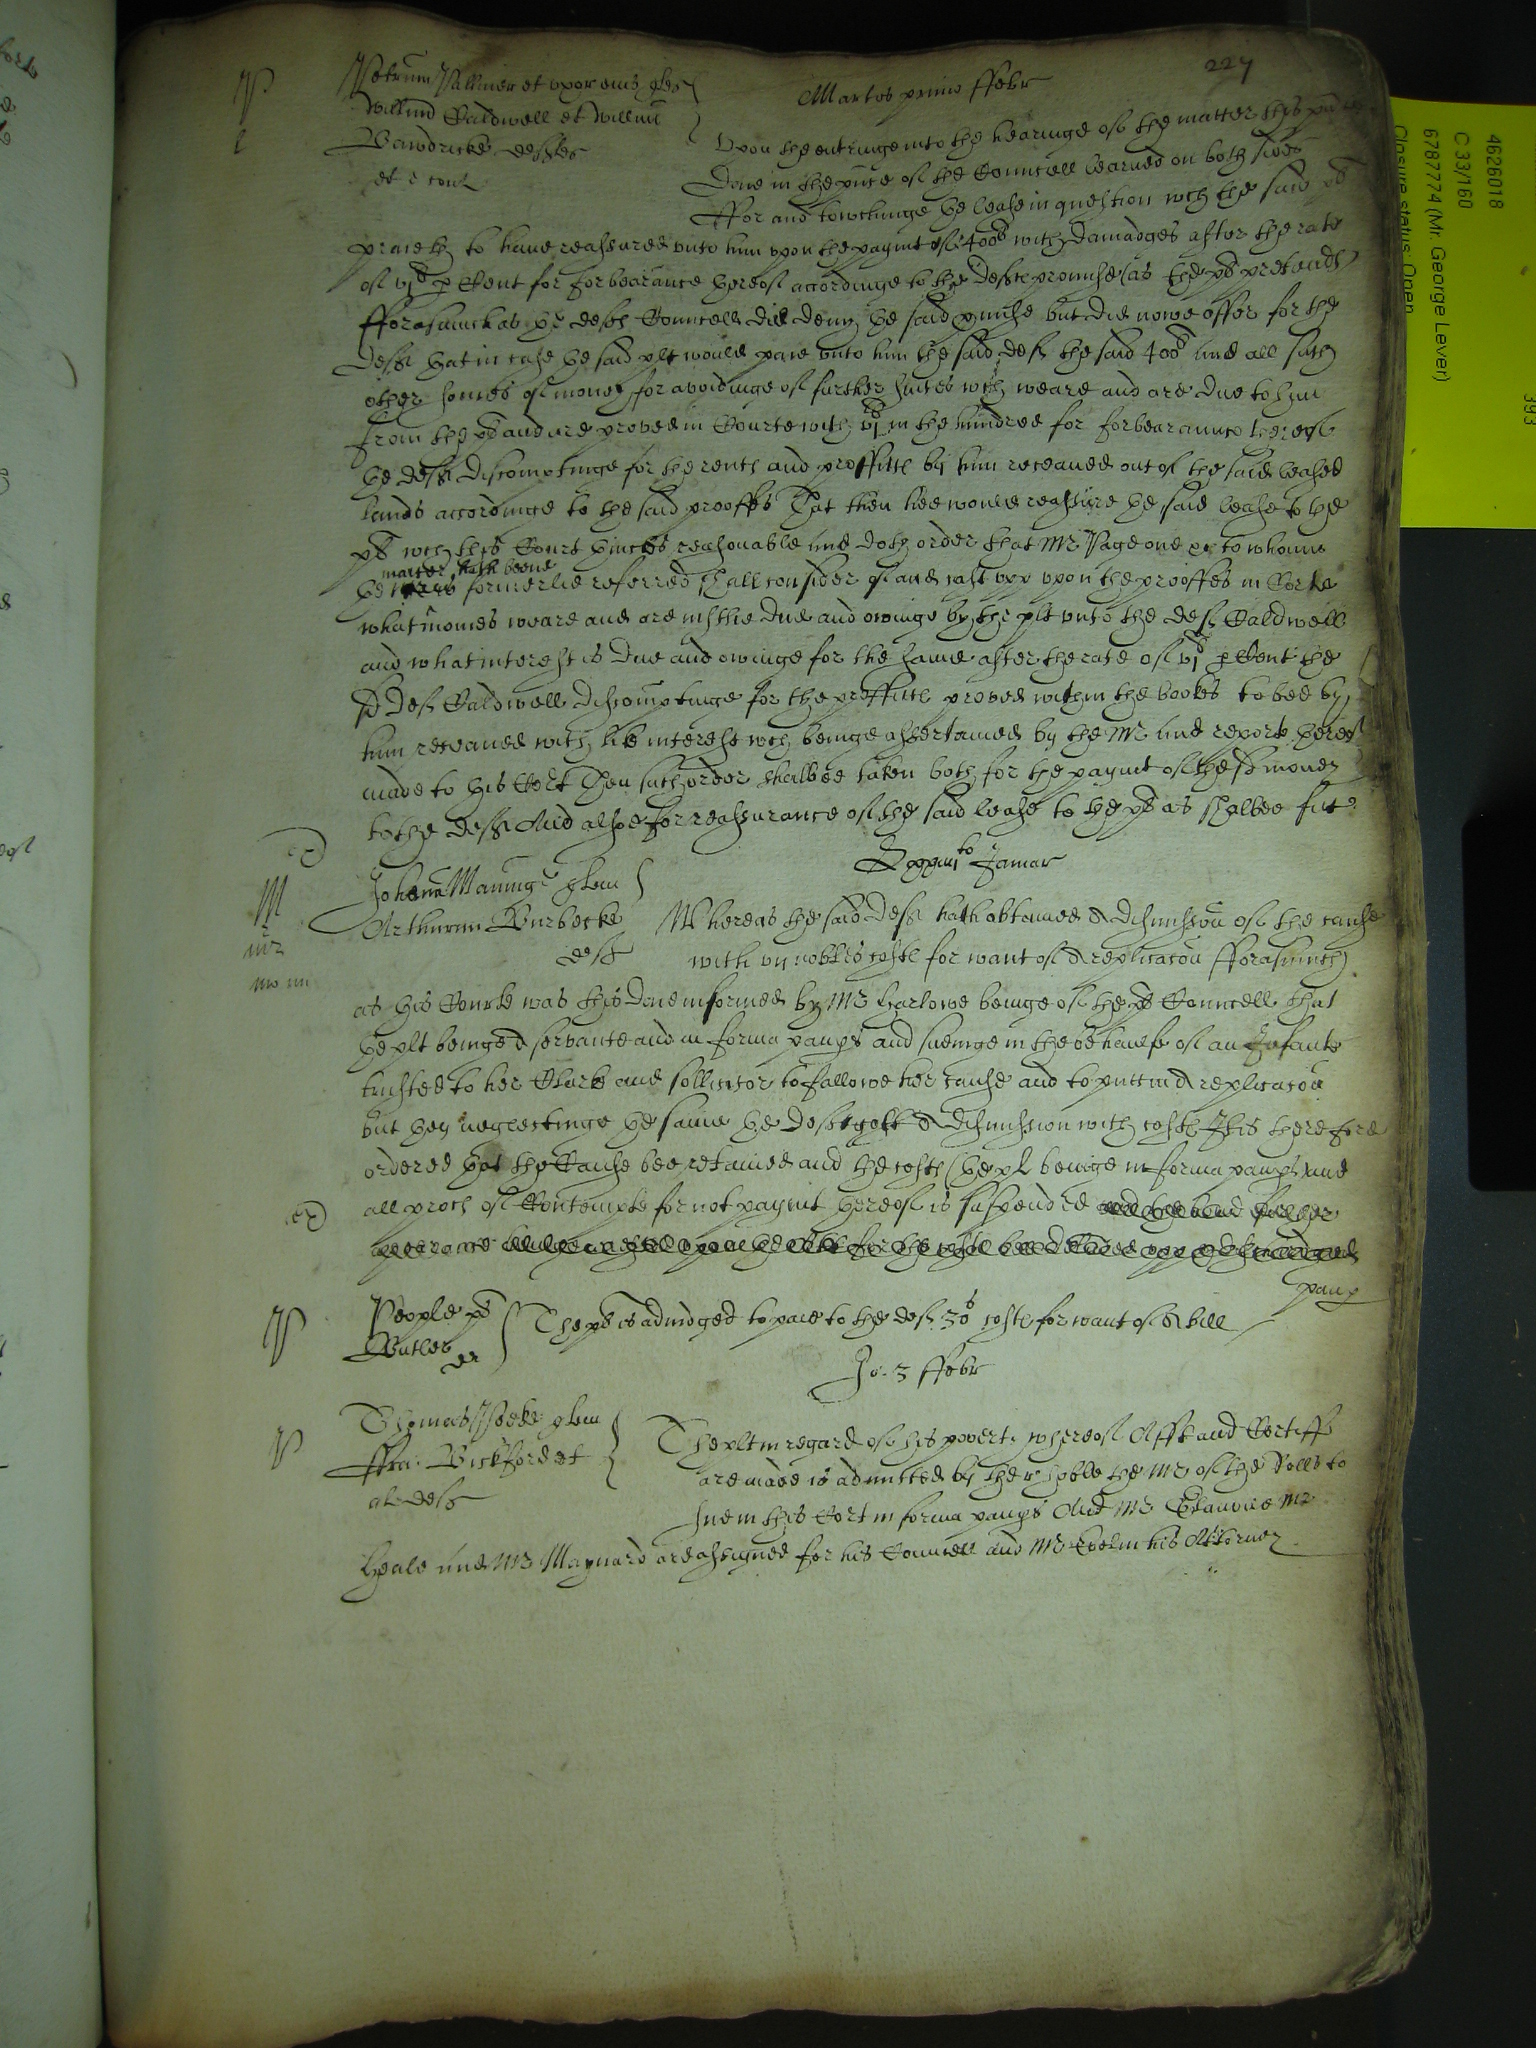 227
P
Petrum Pallmer et uxor eius quer
Willmu Caldwell et Willmu
Bawdricke deftes
et e cont
Martis primo ffebr
Upon the entringe into the hearinge of the matter this
Daie in the pnce of the Councell learned on both sides
ffor and towchinge the lease in question wch the said plt
praieth to have reassured unto him upon the paymt of 400li with damadges after the rate
of vjli p Cent for forbearance thereof accordinge to the deftes promise (as the plt pretends
fforasmuch as the deftes Councell did deny the said pmise but did nowe offer for the
deft that in case the said plt would paie unto him the said deft the said 400li and all such
other somes of money for avoidinge of further suites wch weare and are due to him
from the plt and are proved in Courte with vjli in the hundred for forbearaunce thereof
the deft discomptinge for the rents and proffitts by him receaved out of the said leased
lands accordinge to the said prooffes That then hee would reassure the said lease to the
plt wch this Court thincks reasonable and doth order that Mr Page one &c to whome
matter hath beene
the formerlie referred shall consider of and cast upp upon the prooffes in Corte
what monies weare and are justlie due and owinge by the plt unto the deft Caldwell
and what interest is due and owinge for the same after the rate of vjli p Cent the
sd deft Caldwell discomptinge for the proffitts proved within the bookes to bee by
him receaved with like interest wch beinge assertained by the Mr and reporte thereof
made to this Cort Then such order shalbee taken both for the paymt of the sd money
to the deft And alsoe for reassurance of the said lease to the plt as shalbee fitt
M
Johena Maning quer
Arthurum Burbecke
deft
Januar
Whereas the said deft hath obtained a dismission of the cause
with vij nobles costs for want of a replicacon fforasmuch
as this Courte was this daie informed by Mr Harlowe beinge of the plts Councell that
the plt beinge a servante and in forma paupis and sueinge in the behaulfe of an Infante
trusted to her Clarke and sollicitor to followe her cause and to putt in a replicacon
but they neglectinge the same the deft gott a dismission with costs It is therefore
ordered that the Cause bee retained and the costs (the plt beinge in forma paupis and
all proces of Contempte for not paymt thereof is suspended
paup
P
People plt
Butler
de
The plt is adiudged to paie to the deft 30s costs for want of a bill
Jo. 3 ffebr
P
Thomas Peeke quer
ffra: Bickford et
al deft
The plt in regard of his povertie whereof Afft and Certiff
are made is admitted by the r hoble the Mr of the Rolls to
sue in this Cort in forma paupis And Mr Glanvile Mr
Heale and Mr Maynard are assigned for his Councell and Mr his Attorney
4626018
C 33/160
6787774 (Mr. George Lever)
Closure status: Open
393